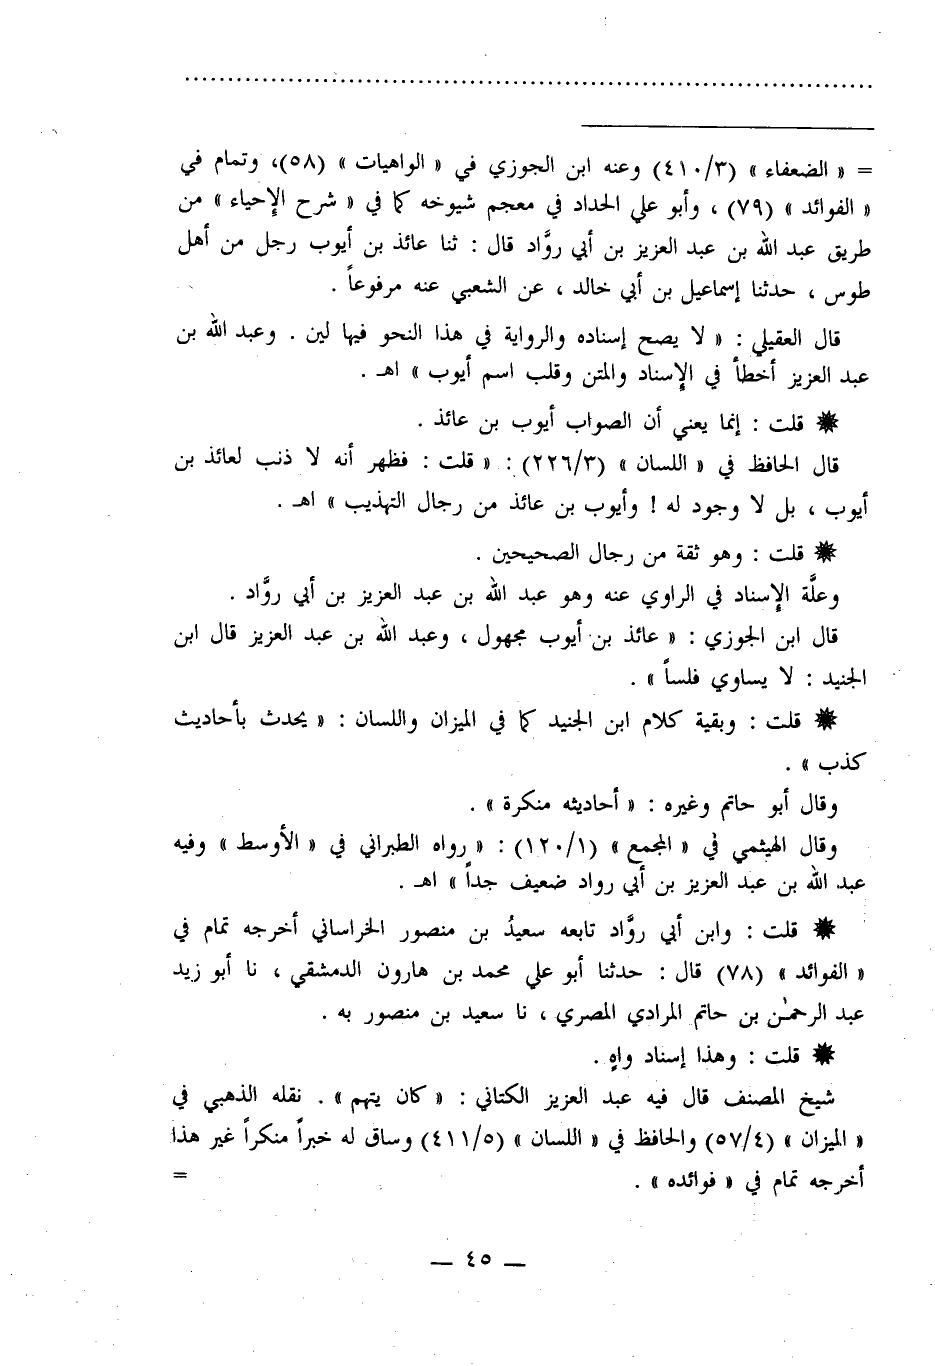 ..........................................................................
= « الضعفاء » (٤١٠/٣) وعنه ابن الجوزي في « الواهيات » (٥٨)، وتمام في
« الفوائد » (٧٩) ، وأبو علي الحداد في معجم شيوخه كما في « شرح الإحياء » من
طريق عبد الله بن عبد العزيز بن أبي روَّاد قال : ثنا عائذ بن أيوب رجل من أهل
طوس ، حدثنا إسماعيل بن أبي خالد ، عن الشعبي عنه مرفوعاً .
قال العقيلي : « لا يصح إسناده والرواية في هذا النحو فيها لين . وعبد الله بن
عبد العزيز أخطأ في الإسناد والمتن وقلب اسم أيوب » اهـ .
✹ قلت : إنما يعني أن الصواب أيوب بن عائذ .
قال الحافظ في « اللسان » (٢٢٦/٣) : « قلت : فظهر أنه لا ذنب لعائذ بن
أيوب ، بل لا وجود له ! وأيوب بن عائذ من رجال التهذيب » اهـ .
✹ قلت : وهو ثقة من رجال الصحيحين .
وعلَّة الإسناد في الراوي عنه وهو عبد الله بن عبد العزيز بن أبي روَّاد .
قال ابن الجوزي : « عائذ بن أيوب مجهول ، وعبد الله بن عبد العزيز قال ابن
الجنيد : لا يساوي فلساً » .
✹ قلت : وبقية كلام ابن الجنيد كما في الميزان واللسان : « يحدث بأحاديث
كذب » .
وقال أبو حاتم وغيره : « أحاديثه منكرة » .
وقال الهيثمي في « المجمع » (١٢٠/١) : « رواه الطبراني في « الأوسط » وفيه
عبد الله بن عبد العزيز بن أبي رواد ضعيف جداً » اهـ .
✹ قلت : وابن أبي روَّاد تابعه سعيدُ بن منصور الخراساني أخرجه تمام في
« الفوائد » (٧٨) قال : حدثنا أبو علي محمد بن هارون الدمشقي ، نا أبو زيد
عبد الرحمٰن بن حاتم المرادي المصري ، نا سعيد بن منصور به .
✹ قلت : وهذا إسناد واهٍ .
شيخ المصنف قال فيه عبد العزيز الكتاني : « كان يتهم » . نقله الذهبي في
« الميزان » (٥٧/٤) والحافظ في « اللسان » (٤١١/٥) وساق له خبراً منكراً غير هذا
أخرجه تمام في « فوائده » . =
— ٤٥ —